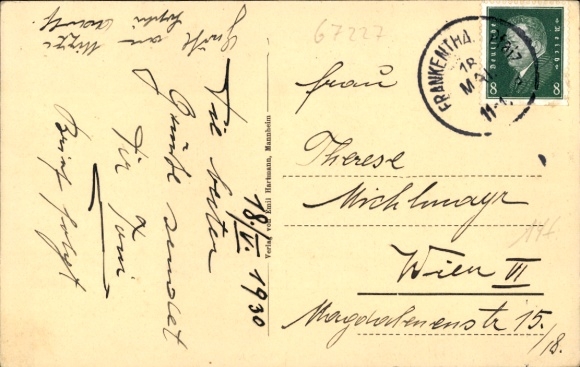 Die besten
Grüße sendet
Brief folgt
18./V. 1930
Verlag von Emil Hartmann, Mannheim
67227
FRANKENTHAL
18
MAI
11-
Deutsches Reich
8 8
Frau
Therese
Michlmayr
Wien VI
Magdalenenstr 15.
/18.